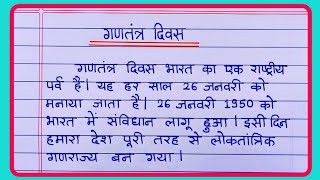 गणतंत्र दिवस
गणतंत्र दिवस भारत का एक राष्ट्रीय
पर्व है। यह हर साल 26 जनवरी को
मनाया जाता है। 26 जनवरी 1950 को
भारत में संविधान लागू हुआ। इसी दिन
हमारा देश पूरी तरह से लोकतांत्रिक
गणराज्य बन गया।